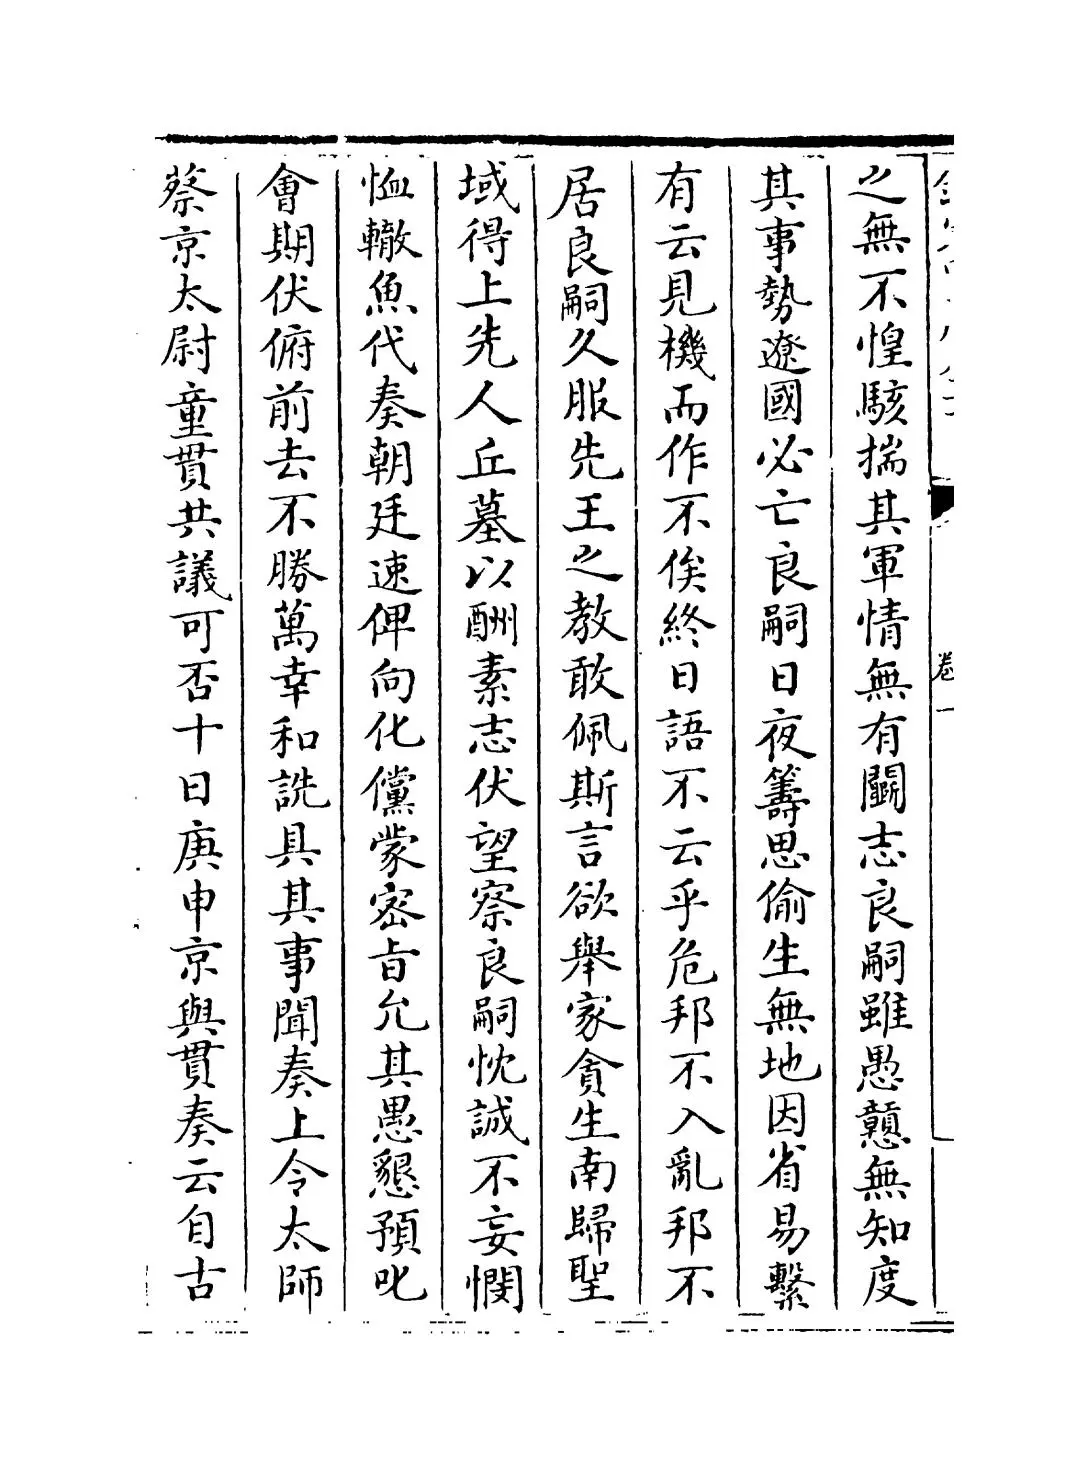 之無不惶駭揣其軍情無有鬭志良嗣雖愚戇無知度
其事勢遼國必亡良嗣日夜籌思偷生無地因省易繫
有云見機而作不俟終日語不云乎危邦不入亂邦不
居良嗣久服先王之教敢佩斯言欲舉家貪生南歸聖
域得上先人丘墓以酬素志伏望察良嗣忱誠不妄憫
恤轍魚代奏朝廷速俾向化儻蒙密旨允其愚懇預叱
會期伏俯前去不勝萬幸和詵具其事聞奏上令太師
蔡京太尉童貫共議可否十日庚申京與貫奏云自古
卷一